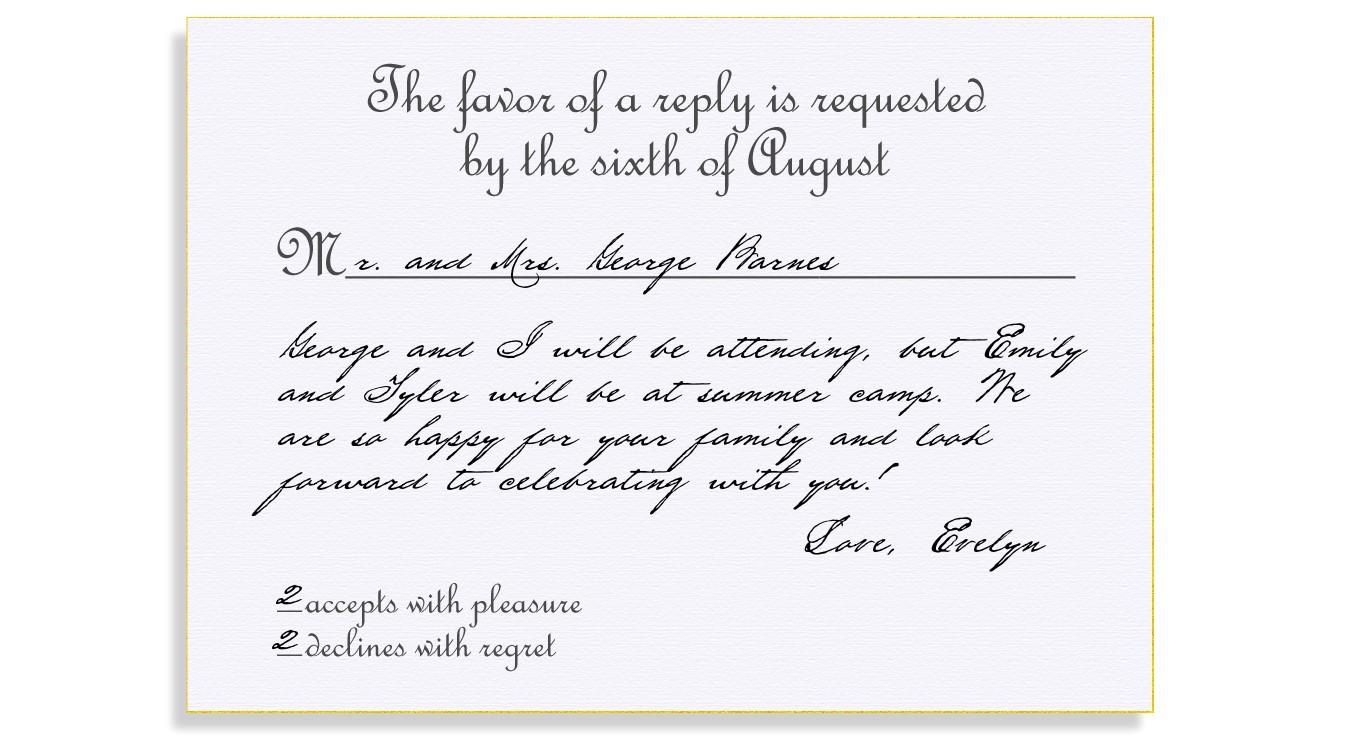 The favor of a reply is requested
by the sixth of August
Mr. and Mrs. George Barnes
George and I will be attending, but Emily
and Tyler will be at summer camp. We
are so happy for your family and look
forward to celebrating with you!
Love, Evelyn
2 accepts with pleasure
2 declines with regret